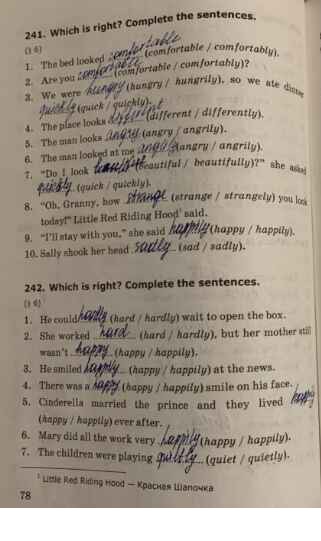 241. Which is right? Complete the sentences.
(§ 6)
1. The bed looked comfortable (comfortable / comfortably).
2. Are you comfortable (comfortable / comfortably)?
3. We were hungry (hungry / hungrily), so we ate dinner
quickly (quick / quickly).
4. The place looks different (different / differently).
5. The man looks angry (angry / angrily).
6. The man looked at me angrily (angry / angrily).
7. "Do I look (beautiful / beautifully)?" she asked
quickly. (quick / quickly).
8. "Oh, Granny, how strange (strange / strangely) you look
today!" Little Red Riding Hood¹ said.
9. "I'll stay with you," she said happily (happy / happily).
10. Sally shook her head sadly (sad / sadly).
242. Which is right? Complete the sentences.
(§ 6)
1. He could hardly (hard / hardly) wait to open the box.
2. She worked hard (hard / hardly), but her mother still
wasn't happy (happy / happily).
3. He smiled happily (happy / happily) at the news.
4. There was a happy (happy / happily) smile on his face.
5. Cinderella married the prince and they lived happily
(happy / happily) ever after.
6. Mary did all the work very happily (happy / happily).
7. The children were playing quietly (quiet / quietly).
¹ Little Red Riding Hood — Красная Шапочка
78